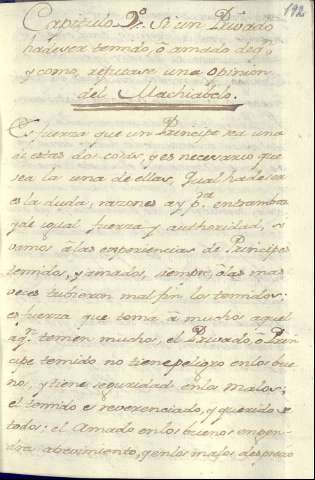 192
Capitulo 9º. Si un Privado
ha de ser temido, ò amado de
y como, refutase una opinion
del Machiabelo.
Es fuerza que un Principe sea una
de estas dos cosas, y es necesario que
sea la una de ellas, Qual ha de ser
es la duda, razones ay pª. entrambas
y de igual fuerza y authoridad, si
vamos à las experiencias de Principes
temidos, y amados, siempre, ò las mas
veces tubieron mal fin los temidos:
es fuerza que tema à muchos aquel
aqⁿ. temen muchos, el Privado, ò Prin
cipe temido no tiene peligro en los bue
nos, y tiene seguridad en los malos;
el temido es reverenciado, y querido de
todos: el Amado en los buenos engen
dra atrevimiento, y en los malos desprecio